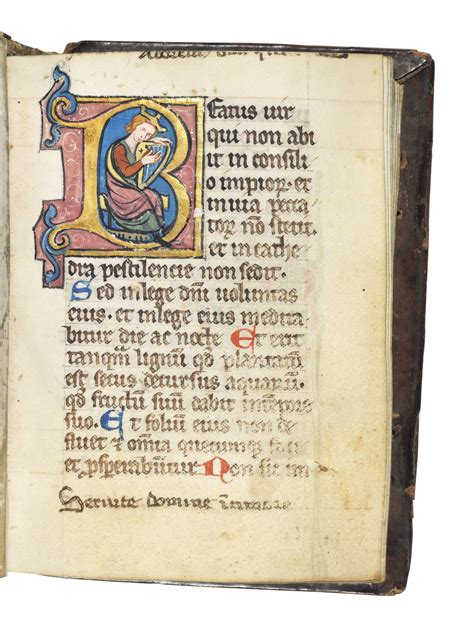 Beatus uir
qui non abi
it in consili
o impior. et
in uia pecca
tor. nō stetit.
et in cathe
dra pestilencie non sedit.
Sed in lege dn̄i uoluntas
eius. et in lege eius medita
bitur die ac nocte Et erit
tanqm̄ lignū qd plantatū
est secus decursus aquarū.
qd fructū suū dabit in tempore
suo. Et foliū eius non de
fluet & omnia quecumque faci
et prosperabūtur Non sic im
Seruite domino in timore